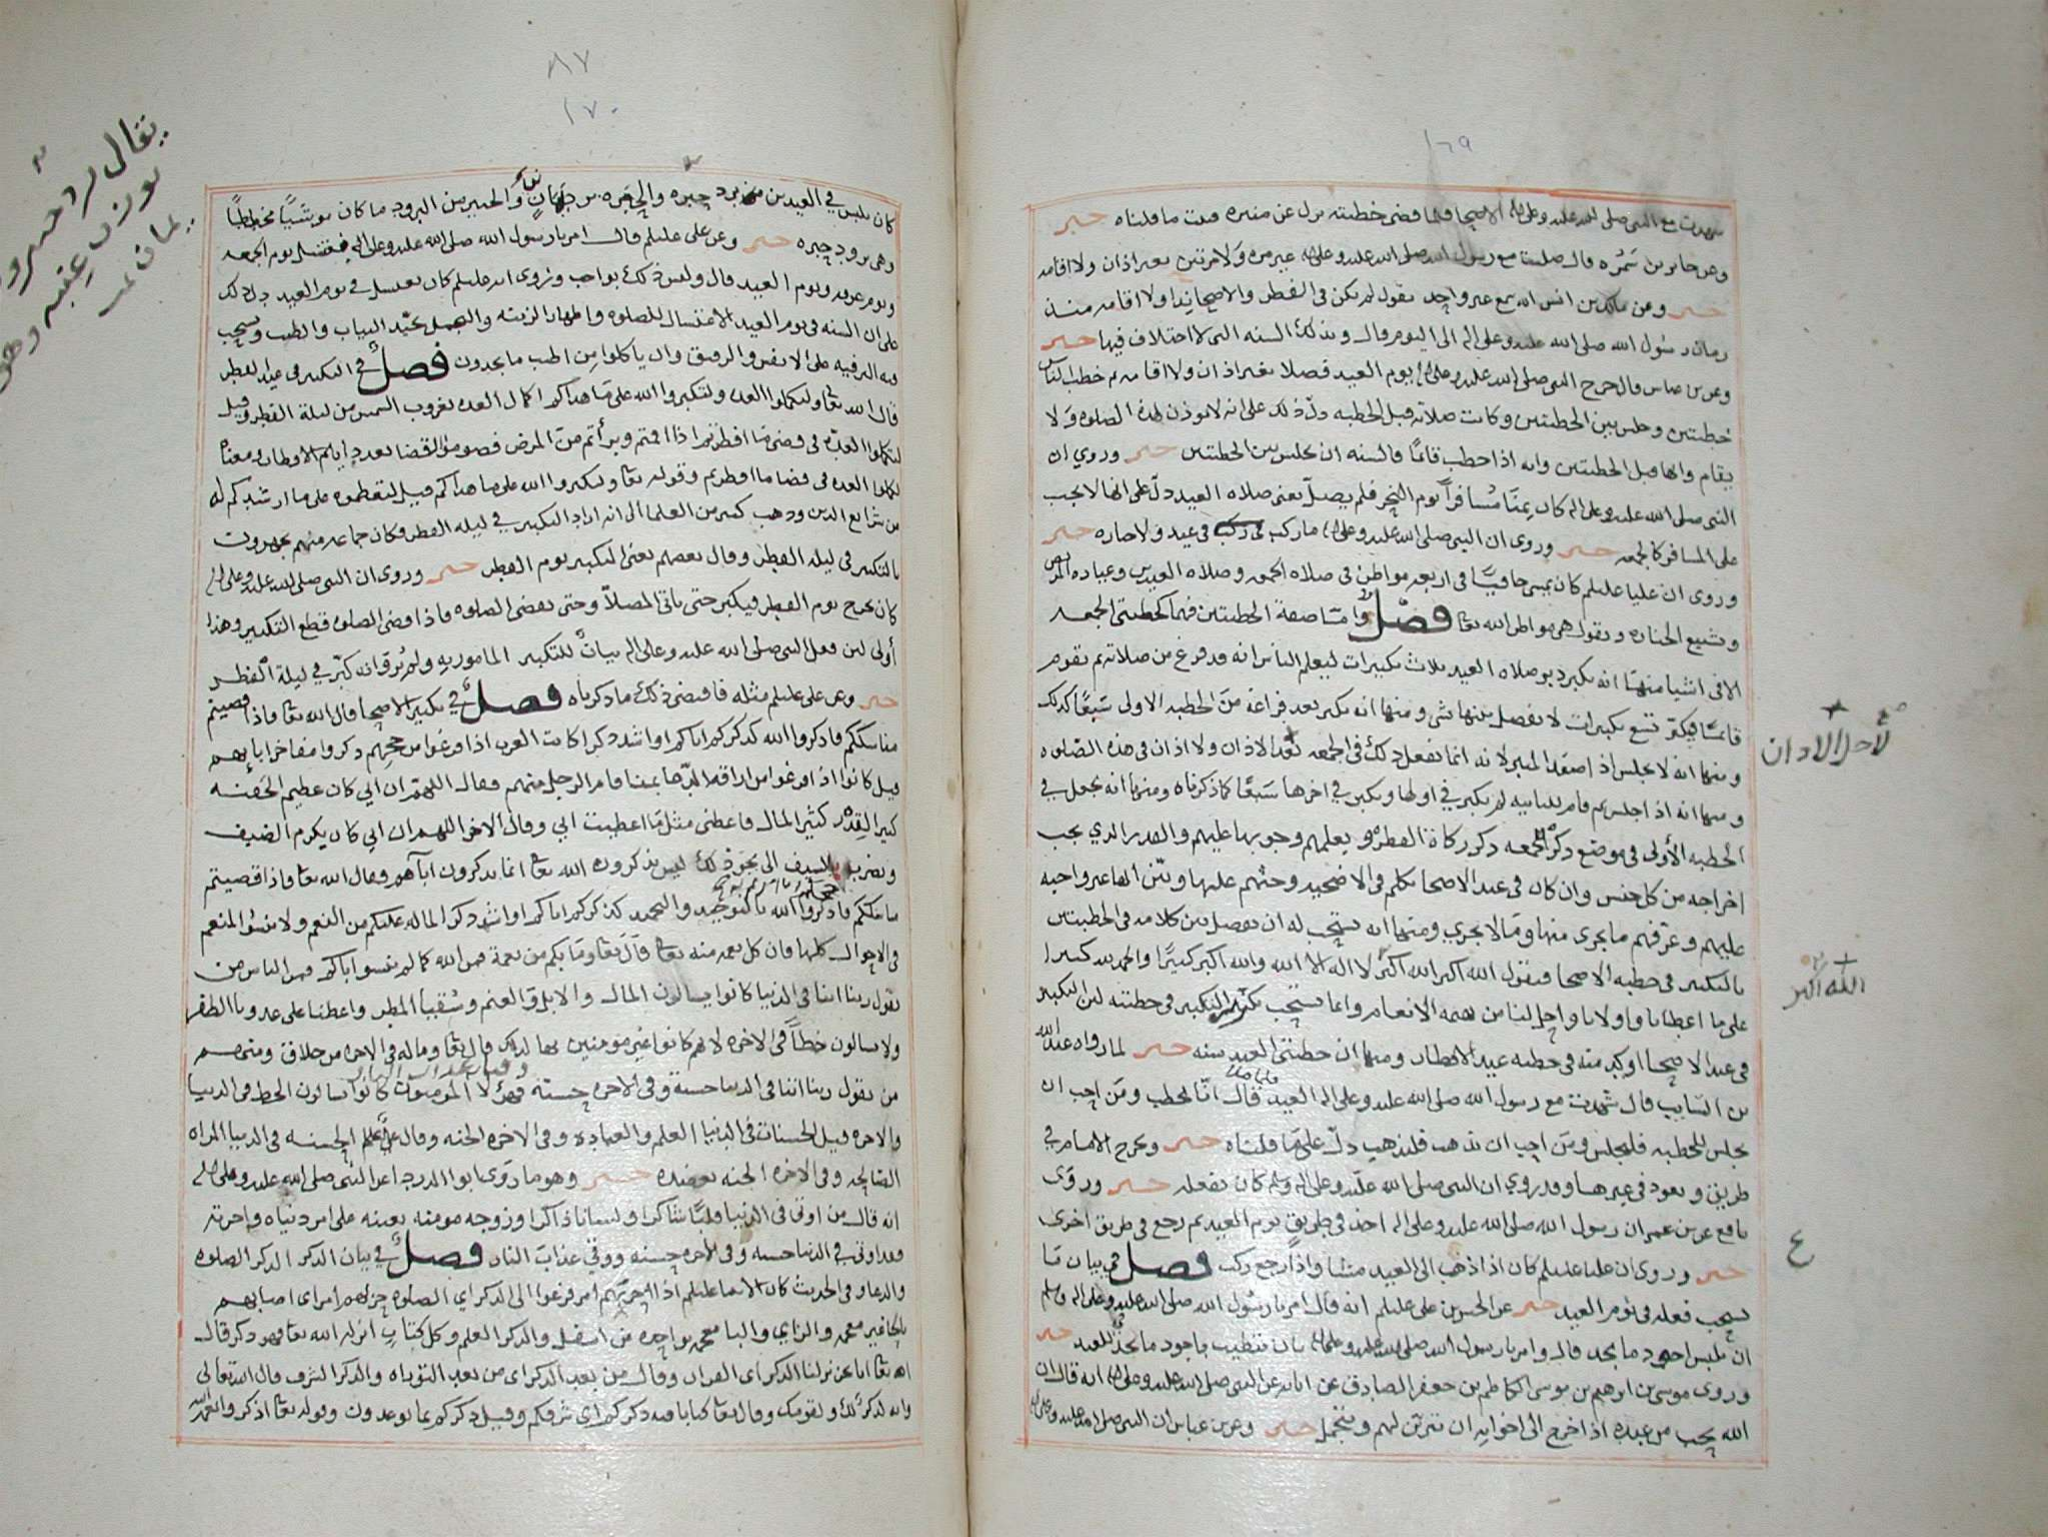 ١٦٩
شهدت مع النبي صلى الله عليه وعلى اله الاضحا فلما قضى خطبته نزل عن منبره فدلت ما قلناه خبر
وعن جابر بن سَمُرَه قال صليت مع رسول الله صلى الله عليه وعلى اله غير مره ولا مرتين بغير اذان ولا اقامه
خبر وعن مالك بن انس انه سمع غير واحد يقول لم يكن في الفطر والاضحا نِدَا ولا اقامه منذ
زمان رسول الله صلى الله عليه وعلى اله الى اليوم قال وتلك السنه التي لا اختلاف فيها خبر
وعن بن عباس قال خرج النبي صلى الله عليه وعلى اله يوم العيد فصلا بغير اذان ولا اقامه ثم خطب الناس
خطبتين وجلس بين الخطبتين وكانت صلاته قبل الخطبه دلّ ذلك على انه لا يوذن لهذه الصلوه وَلا
يقام وانها قبل الخطبتين وانه اذا خطب قائمًا فالسنه ان يجلس بين الخطبتين خبر وروي ان
النبي صلى الله عليه وعلى اله كان بِمنَا مُسَافراً يوم النحر فلم يصلّ يعني صلاه العيد دلّ على انها لا يجب
على المسافر كالجمعه خبر وروى ان النبي صلى الله عليه وعلى اله ما ركب في عيد ولا جنازه خبر
وروى ان عليا عليلم كان يمشي حافيًا في اربعه مواطن في صلاه الجمعه وصلاه العيدين وعياده المريض
وتشييع الجنازه ويقول هي مواطن الله تعا فصل وامّا صفة الخطبتين فهما كخطبتي الجمعه
الا في اشيا منها انه يكبر دبر صلاه العيد ثلاث تكبيرات ليعلم الناس انه قد فرغ من صلاته ثم يقوم
قائمًا فيكبّر تسع تكبيرات لا يفصل بينها بشي ومنها انه يكبر بعد فراغه من الخطبه الاولى سَبعًا كذلك
ومنها انه لا يجلس اذا صعد المنبر لانه انما يفعل ذلك في الجمعه لاجل الاذان ولا اذان في هذه الصلوه
ومنها انه اذا جلس ثم قام للثانيه لم يكبر في اولها ويكبر في اخرها سَبعًا كما ذكرناه ومنها انه يجعل في
الخطبه الأولى في موضع ذكر الجمعه ذكر زكاة الفطر ويعلمهم وجوبها عليهم والقدر الذي يجب
اخراجه من كل جنس وان كان في عيد الاضحا تكلم في الاضحيه وحثهم عليها وبيّن انها غير واجبه
عليهم وعرّفهم ما يجزي منها وما لا يجزي ومنها انه يستحب له ان يفصل بين كلامه في الخطبتين
بالتكبير في خطبه الاضحا فيقول الله اكبر الله اكبر لا اله الا الله والله اكبر كبيرًا والحمد لله كثيرا
على ما اعطانا واولانا واحل لنا من بهيمه الانعام وانما يستحب تكثير التكبير في خطبته لان التكبير
في عيد الاضحا اوكد منه في خطبه عيد الافطار ومنها ان خطبتي العيد سنه خبر لما رواه عبد الله
بن السّايب قال شهدت مع رسول الله صلى الله عليه وعلى اله العيد فلما صلا قال انّا نخطب ومَن احب ان
يجلس للخطبه فليجلس ومَن احب ان يذهب فليذهب دلّ على ما قلناه خبر ويخرج الامام في
طريق ويعود في غيرها وقد روي ان النبي صلى الله عليه وعلى اله وسلم كان يفعله خبر وروَى
نافع عن بن عمر ان رسول الله صلى الله عليه وعلى اله اخذ في طريق يوم العيد ثم رجع في طريق اخرى
خبر وروى ان عليا عليلم كان اذا ذهب الى العيد مشا واذا رجع ركب فصل في بيان مَا
يستحب فعله في يوم العيد خبر عن الحسن بن على عليلم انه قال امرنا رسول الله صلى الله عليه وعلى اله وسلم
ان نلبس اجود ما نجد قال وامرنا رسول الله صلى الله عليه وعلى اله بان نتطيب باجود ما نجد للعيد خبر
وروى موسى بن ابرهيم بن موسى الكاظم بن جعفر الصادق عن ابائه عن النبي صلى الله عليه وعلى اله انه قال ان
الله يحب من عبده اذا خرج الى اخوانه ان يتزيّن لهم ويتجمل خبر وعن بن عباس ان النبي صلى الله عليه وعلى اله
لاجل الاذان
الله اكبر
ع
٨٧
١٧٠
كان يلبس في العيدين برد حِبَره والحِبَره برد يمانٍ والحبير من البرود ما كان موشيًّا مخططًا
وهي برود حبره خبر وعن على عليلم قال امرنا رسول الله صلى الله عليه وعلى اله بغسل يوم الجمعه
ويوم عرفه ويوم العيد قال وليس ذلك بواجب وروى انه عليلم كان يغتسل في يوم العيد دل ذلك
على ان السنه في يوم العيد الاغتسال للصلوه واظهار الزينه والتجمل بجيّد الثياب والطيب ويستحب
فيه الترفيه على الانفس والرفق وان ياكلوا من اطيب ما يجدون فصل في التكبير في عيد الفطر
قال الله تعا ولتكملوا العده ولتكبروا الله على ما هداكم اكمال العده بغروب الشمس من ليلة الفطر وقيل
لتكملوا العدّه في قضى مَا افطرتم اذا اقمتم وبرأتم من المرض فصوموا للقضا بعدد ايام الافطار ومعناه
لتكملوا العده في قضا ما افطرتم وقوله تعا ولتكبروا الله على ما هداكم قيل لتعظموه على ما ارشدكم له
من شرايع الدين وذهب كثير من العلما الى انه اراد التكبير في ليله الفطر وكان جماعه منهم يجهرون
بالتكبير في ليله الفطر وقال بعضهم يعني التكبير يوم الفطر خبر وروى ان النبي صلى الله عليه وعلى اله
كان يخرج يوم الفطر فيكبر حتى ياتي المصلاّ وحتى يقضى الصلوه فاذا قضى الصلوه قطع التكبير وهذا
أولى لان فعل النبي صلى الله عليه وعلى اله بيانٌ للتكبير المامور به ولم يُروَ انه كبّر في ليلة الفطر
خبر وعن على عليلم مثله فاقتضى ذلك ما ذكرناه فصل في تكبير الاضحا قال الله تعا فاذا قضيتم
مناسككم فاذكروا الله كذكركم اباكم او اشد ذكرا كانت العرب اذا فرغوا من حجهم ذكروا مفاخر ابايهم
قيل كانوا اذا فرغوا من اراقه الدّما بمنا قام الرجل منهم فقال اللهم ان ابي كان عظيم الجَفنه
كبير القِدْر كثير المال فاعطني مثل مَا اعطيت ابي وقال الاخر اللهم ان ابي كان يكرم الضيف
ويضرب بالسيف الى نحو ذلك ليس يذكرون الله تعا انما يذكرون آباَهم وقال الله تعا فاذا قضيتم
مناسككم فاذكروا الله بالتوحيد والتحميد كذكركم اباكم او اشد ذكرا لما له عليكم من النعم ولا تنسوا المنعم
في الاحوال كلها فان كل نعمه منه تعا قالَ تعا ومَا بكم من نعمة فمن الله كما لم تنسوا اباكم فمن الناس من
يقول ربنا اتنا في الدنيا كانوا يسالون المال والابل والغنم وسُقيا المطر واعطنا على عدونا الظفر
ولا يسالون حَظّاً في الاخره لانهم كانوا غير مومنين بها لذلك قال تعا وما له في الاخره من خلاق ومنهم
من يقول ربنا اتنا في الدنيا حسنة وفي الاخره حسنَة وقنا عذاب النار فهؤلا المومنون كانوا يسالون الحظ في الدنيا
والاخره قيل الحسنات في الدنيا العلم والعباده وفي الاخره الجنه وقال على عليلم الحسنه في الدنيا المراه
الصالحه وفي الاخره الجنه يعضده خبر وهو ما روَى ابو الدردا عن النبي صلى الله عليه وعلى اله
انه قال من اوتي في الدنيا قلبًا شاكرا ولسانا ذاكرا وزوجه مومنه تعينه على امر دنياه واخرته
فقد اوتي في الدنيا حسنه وفي الاخره حسنه ووقي عذاب النار فصل في بيان الذكر الذكر الصلوه
والدعا وفي الحديث كان الانبيا عليلم اذا احزنهم امر فزعوا الى الذكر اي الصلوه حزنهم امر اي اصابهم
بالحا غير معجمه والزاي والبا معجمه بواحده من اسفل والذكر العلم وكل كتاب انزله الله تعا فهو ذكر قال
الله تعا انا نحن نزلنا الذكر اى القران وقال من بعد الذكر اى من بعد التوراه والذكر الشرف قال الله تعالى
وانه لذكر لك ولقومك وقال تعا كتابا فيه ذكركم اي شرفكم وقيل ذكركم بما توعدون وقوله تعا اذكروا نعمه الله
يقال برد حبره
بوزن عِنَبه وهو
يمان